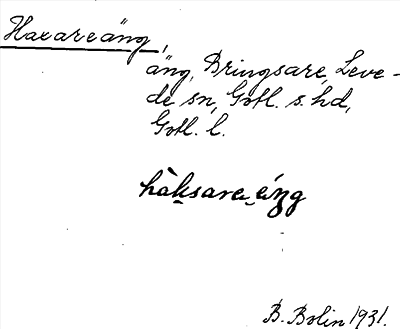 Haxareäng,
äng, Bringsare, Leve-
de sn, Gotl. s. hd,
Gotl. l.
hàḵsarea̮ áṉg
B. Bolin 1931.